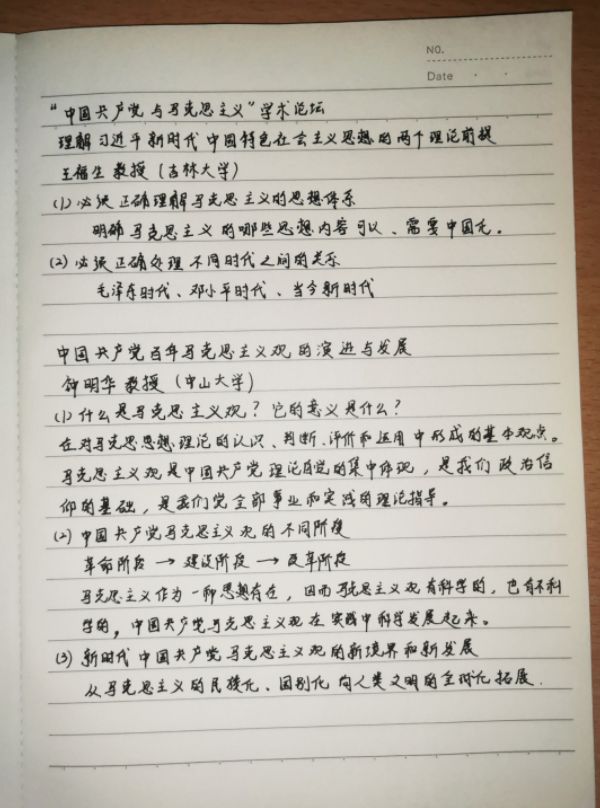 NO.
Date
“中国共产党与马克思主义”学术论坛
理解习近平新时代中国特色社会主义思想的两个理论前提
王福生 教授（吉林大学）
(1) 必须正确理解马克思主义的思想体系
明确马克思主义的哪些思想内容可以、需要中国化。
(2) 必须正确处理不同时代之间的关系
毛泽东时代、邓小平时代、当今新时代
中国共产党百年马克思主义观的演进与发展
钟明华 教授（中山大学）
(1) 什么是马克思主义观？它的意义是什么？
在对马克思思想理论的认识、判断、评价和运用中形成的基本观点。
马克思主义观是中国共产党理论自觉的集中体现，是我们政治信
仰的基础，是我们党全部事业和实践的理论指导。
(2) 中国共产党马克思主义观的不同阶段
革命阶段 → 建设阶段 → 改革阶段
马克思主义作为一种思想存在，因而马克思主义观有科学的，也有不科
学的，中国共产党马克思主义观在实践中科学发展起来。
(3) 新时代中国共产党马克思主义观的新境界和新发展
从马克思主义的民族化、国别化向人类文明的全球化拓展.